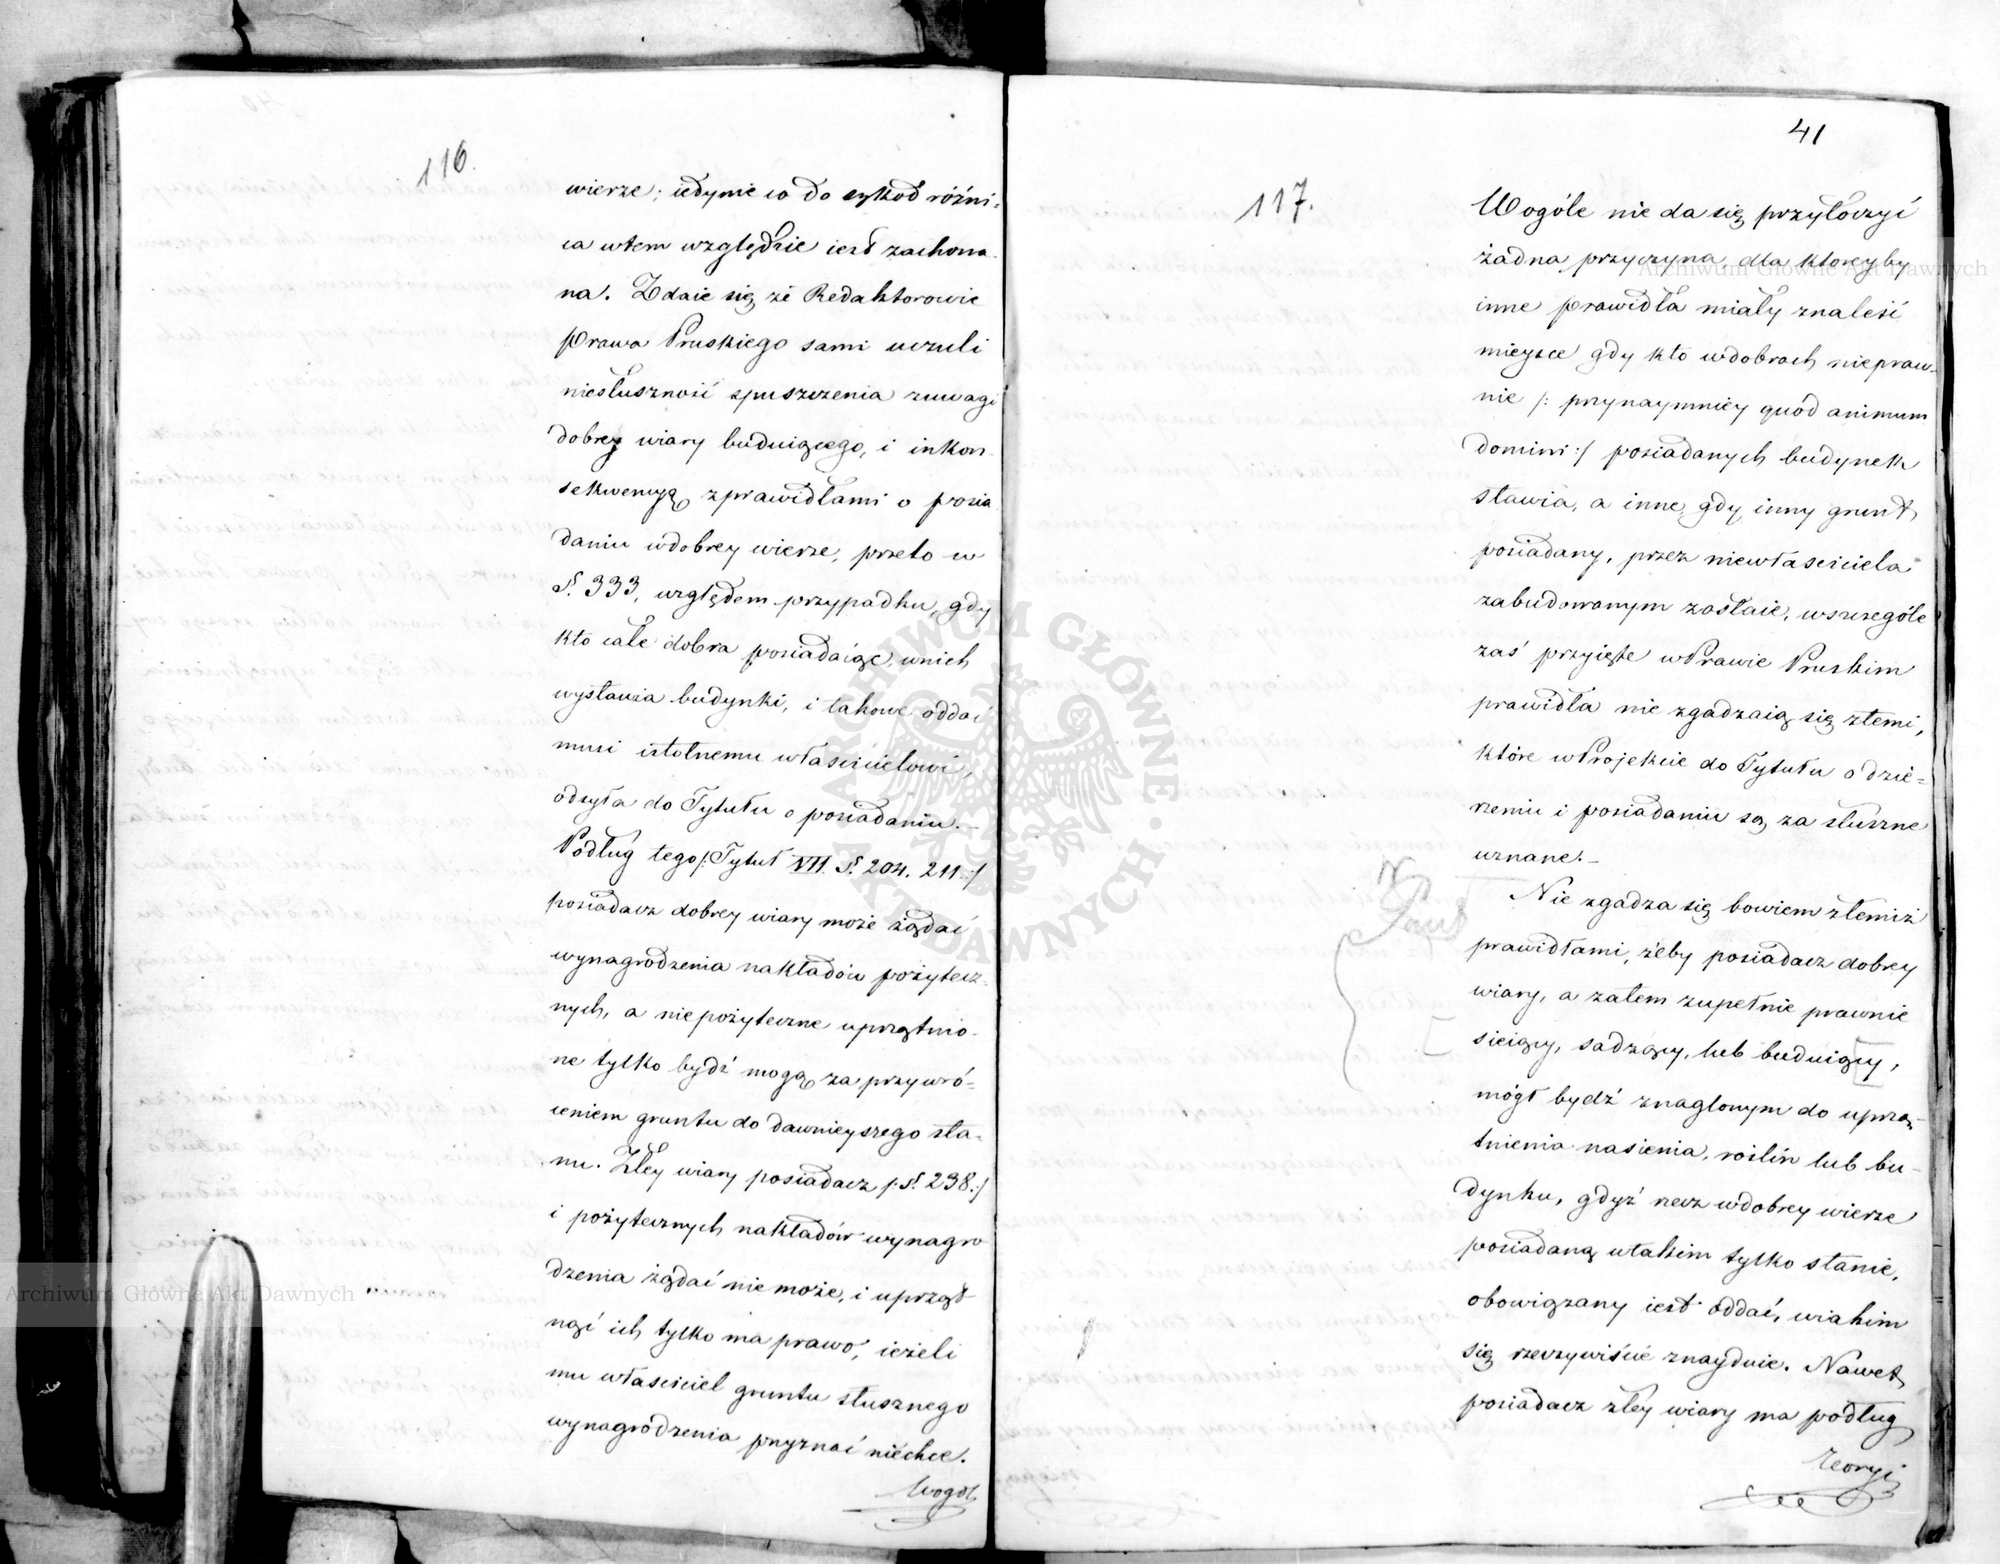 116.
wierze; iedynie co do szkod różni-
ca wtem względzie iest zachowa-
na. Zdaie się że Redaktorowie
Prawa Pruskiego sami uczuli
niesłuszność spuszczenia zuwagi
dobrey wiary buduiącego, i inkon-
sekwencyą zprawidłami o posia
daniu wdobrey wierze, przeto w
§. 333, względem przypadku, gdy
kto całe dobra posiadaiąc, wnich
wystawia budynki, i takowe oddać
musi istotnemu właścicielowi,
odsyła do Tytułu o posiadaniu.—
Podług tego /: Tytuł VII. §. 204. 211 :/
posiadacz dobrey wiary może żądać
wynagrodzenia nakładów pożytecz-
nych, a niepożyteczne uprzątnio-
ne tylko bydź mogą za przywró-
ceniem gruntu do dawnieyszego sta-
nu. Złey wiary posiadacz /: §. 238 :/
i pożytecznych nakładów wynagro
dzenia żądać nie może, i uprząt-
nąć ich tylko ma prawo, ieżeli
mu właściciel gruntu słusznego
wynagrodzenia przyznać niechce.
Wogól
41
117.
Wogóle nie da się przytoczyć
żadna przyczyna, dla ktoreyby
inne prawidła miały znaleść
mieysce gdy kto wdobrach niepraw-
nie /: przynaymniey quod animum
domini :/ posiadanych budynek
stawia, a inne, gdy inny grunt,
posiadany, przez niewłaściciela
zabudowanym zostaie, wszczególe
zaś przyięte wPrawie Pruskim
prawidła nie zgadzaią się ztemi,
które wProjekcie do Tytułu o dzie-
rzeniu i posiadaniu są za słuszne
uznane.—
Nie zgadza się bowiem ztemiż
prawidłami, żeby posiadacz dobrey
wiary, a zatem zupełnie prawnie
sieiący, sadzący, lub buduiący,
mógł bydź znaglonym do uprzą-
tnienia nasienia, roślin lub bu-
dynku, gdyż rzecz wdobrey wierze
posiadaną wtakim tylko stanie,
obowiązany iest oddać, wiakim
się rzeczywiście znayduie. Nawet
posiadacz złey wiary ma podług
Teoryi
Archiwum Główne Akt Dawnych
Archiwum Główne Akt Dawnych
ARCHIWUM GŁÓWNE AKT DAWNYCH